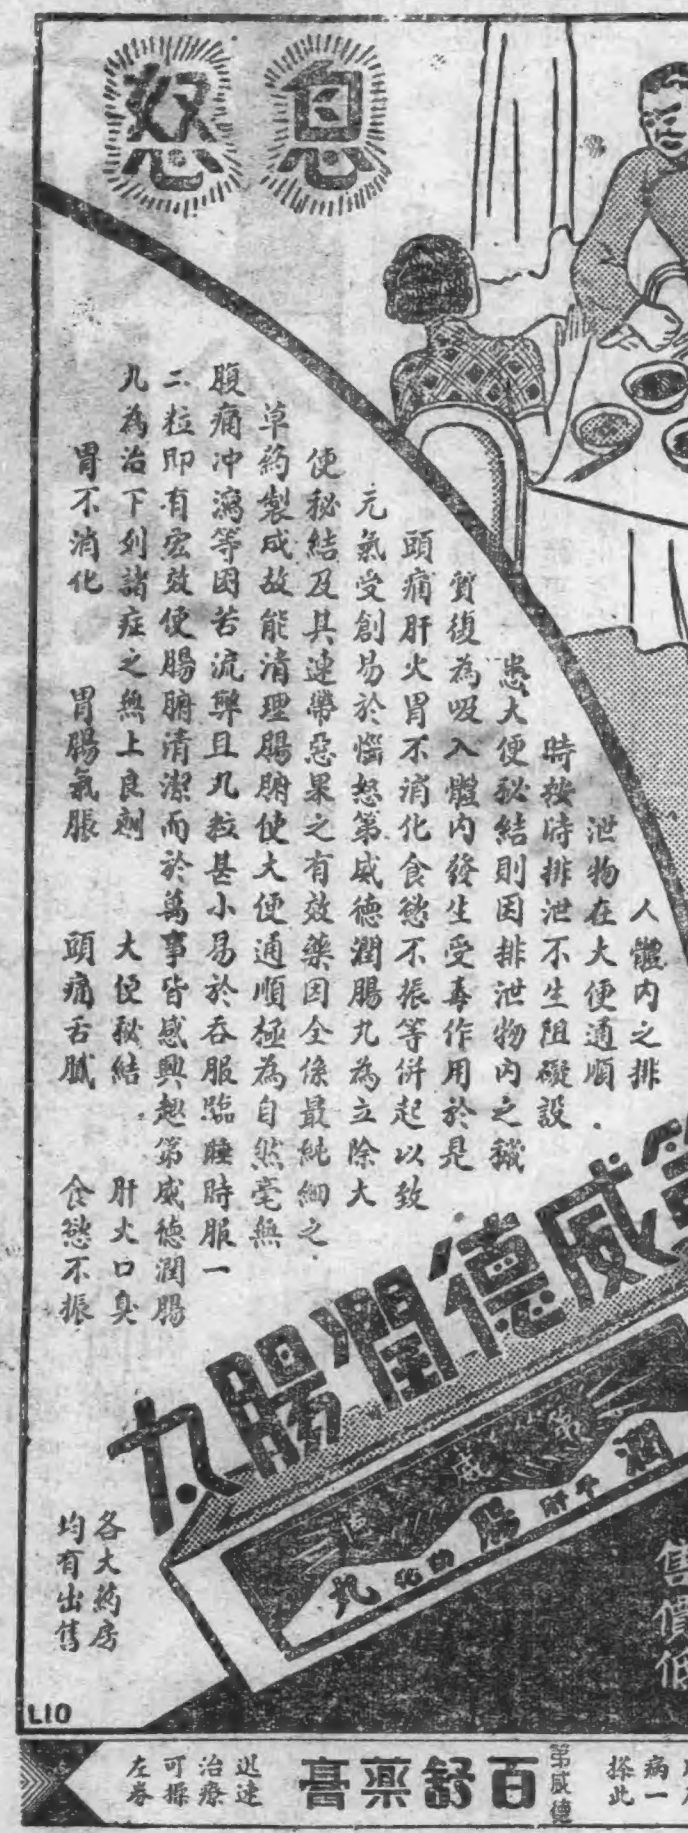 息怒
人體內之排
泄物在大便通順
時按時排泄不生阻礙設
患大便秘結則因排泄物內之穢
質復為吸入體內發生受毒作用於是
頭痛肝火胃不消化食慾不振等併起以致
元氣受創易於惱怒第威德潤腸丸為立除大
便秘結及其連帶惡果之有效藥因全係最純細之
草药製成故能清理腸腑使大便通順極為自然毫無
腹痛冲瀉等困苦流弊且丸粒甚小易於吞服臨睡時服一
二粒即有宏效使腸腑清潔而於萬事皆感興趣第威德潤腸
丸為治下列諸症之無上良劑 大便秘結 肝火口臭
胃不消化 胃腸氣脹 頭痛舌膩 食慾不振
威德潤腸丸
威 德
潤
平肝
腸
丸
售價低
各大药房
均有出售
L10
病一
擦此
第威德
百舒藥膏
迅速
治療
可擦
左券